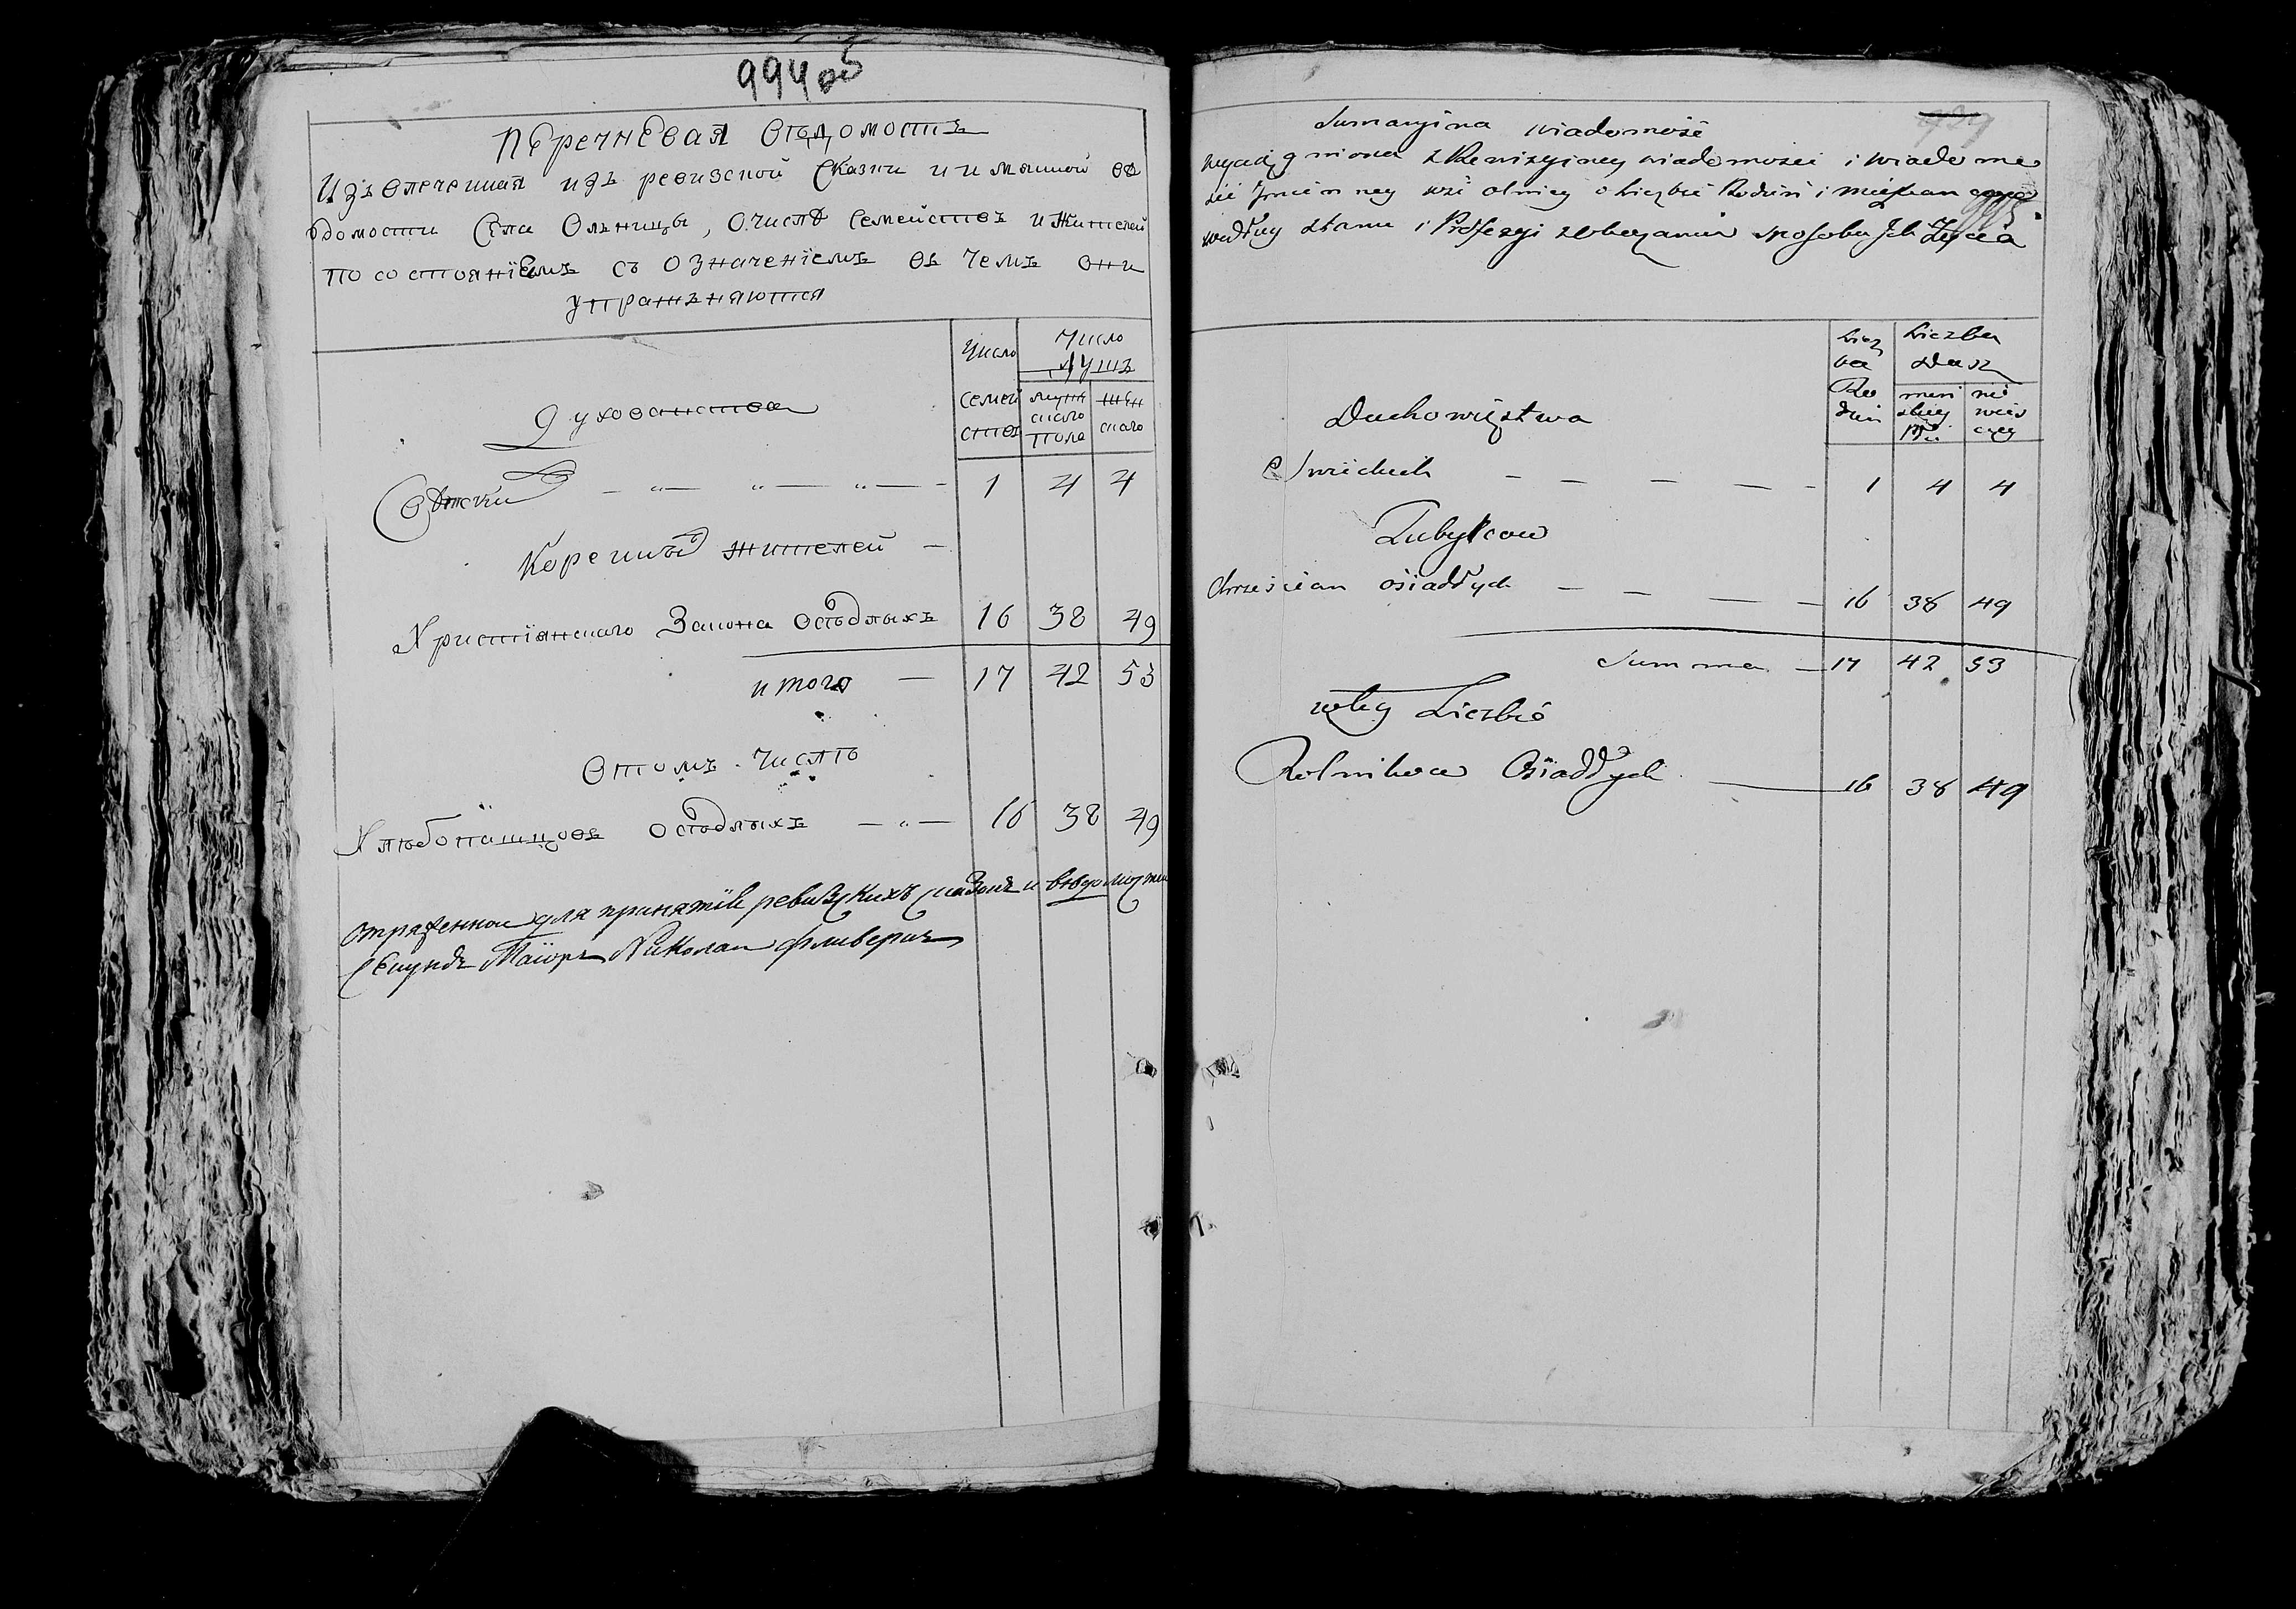 994 об
Перечневая Вѣдомость
Изъ влеченная изъ ревизской Сказки и и мянной вѣ
домости Села Ольницы, О числѣ Семействъ и Жителей
по состоянїемъ съ означенїемъ въ чемъ они
упражъняются
Число
семей
ствъ
Число
душъ
мужж
скаго
пола
жен
скаго
Духованства
Свѣтски 1 4 4
Коренный жителей
Христїянскаго Закона Осѣдлыхъ 16 38 49
итого 17 42 53
Втомъ Числѣ
Хлѣбопашцовъ осѣдлыхъ 16 38 49
Отряженной для принятїе ревизкихъ сказокъ и вѣдомостей
Секундъ Маїоръ Николаи
Sumaryina wiadomość
wyciągniona z Rewizyiney wiadomości i wiadomo
ści Jmienney wsi olnicy o liczbie Rodzin i Mieszkan
według stanu i Professyi sposobu Jch Życia
Licz
ba
Ro
dzin
Liczba
Dusz
men
skiey
Płci
nie
wies
ciey
Duchowięstwa
Swieckich 1 4 4
Tubylcow
chrześcian osiadłych 16 38 49
Summa 17 42 53
wtey Liczbie
Rolnikow Osiadłych 16 38 49